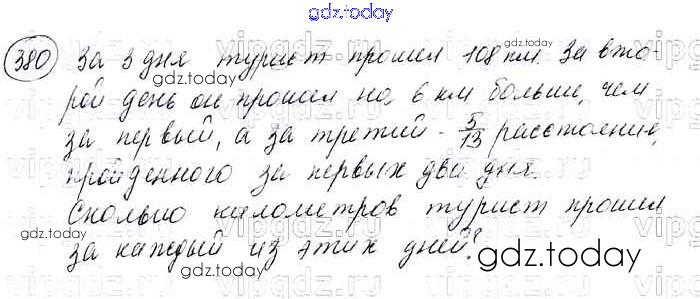 gdz.today
380 За 3 дня турист прошел 108 км. За вто-
рой день он прошел на 6 км больше, чем
за первый, а за третий - 5/13 расстояние,
пройденного за первых два дня.
Сколько километров турист прошел
за каждый из этих дней?
gdz.today